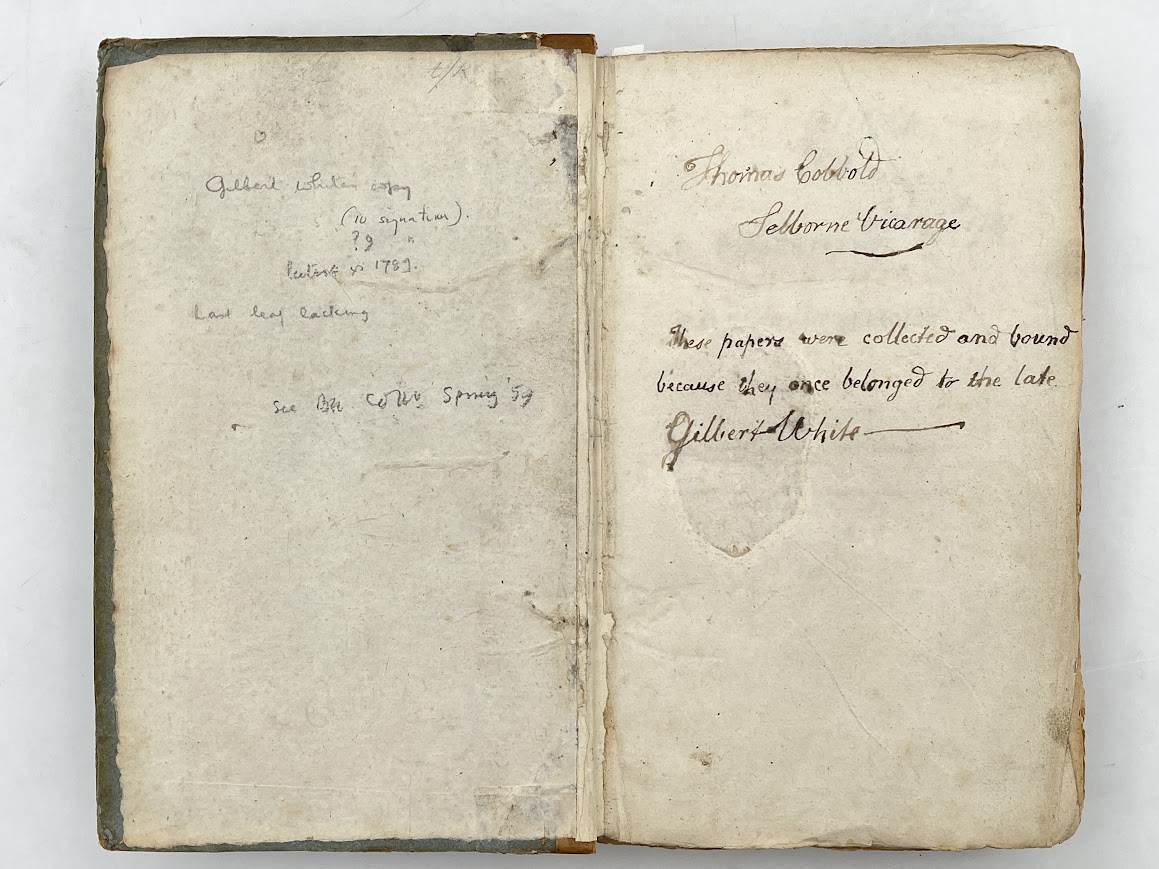 Gilbert Whites copy
(10 signatures).
? 9 "
latest 1789.
Last leaf lacking
See Bk. Coll. Spring '59
Thomas Cobbold
Selborne Vicarage
These papers were collected and bound
because they once belonged to the late
Gilbert White